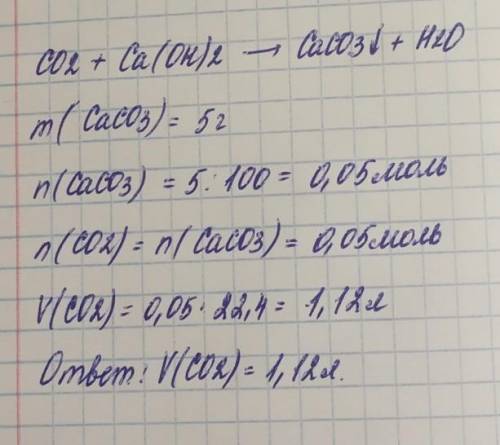 CO2 + Ca(OH)2 → CaCO3↓ + H2O
m(CaCO3) = 5г
n(CaCO3) = 5 : 100 = 0,05 моль
n(CO2) = n(CaCO3) = 0,05 моль
V(CO2) = 0,05 · 22,4 = 1,12л
Ответ: V(CO2) = 1,12л.